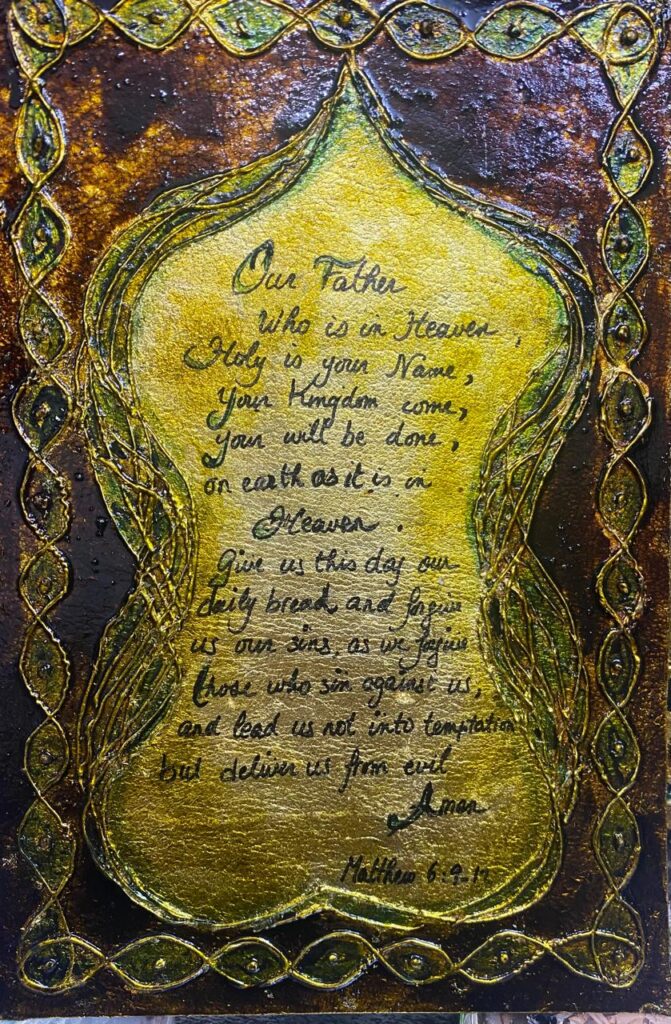 Our Father
Who is in Heaven,
Holy is your Name,
your Kingdom come,
your will be done,
on earth as it is in
Heaven.
Give us this day our
daily bread, and forgive
us our sins, as we forgive
those who sin against us,
and lead us not into temptation,
but deliver us from evil
Amen
Matthew 6:9-1